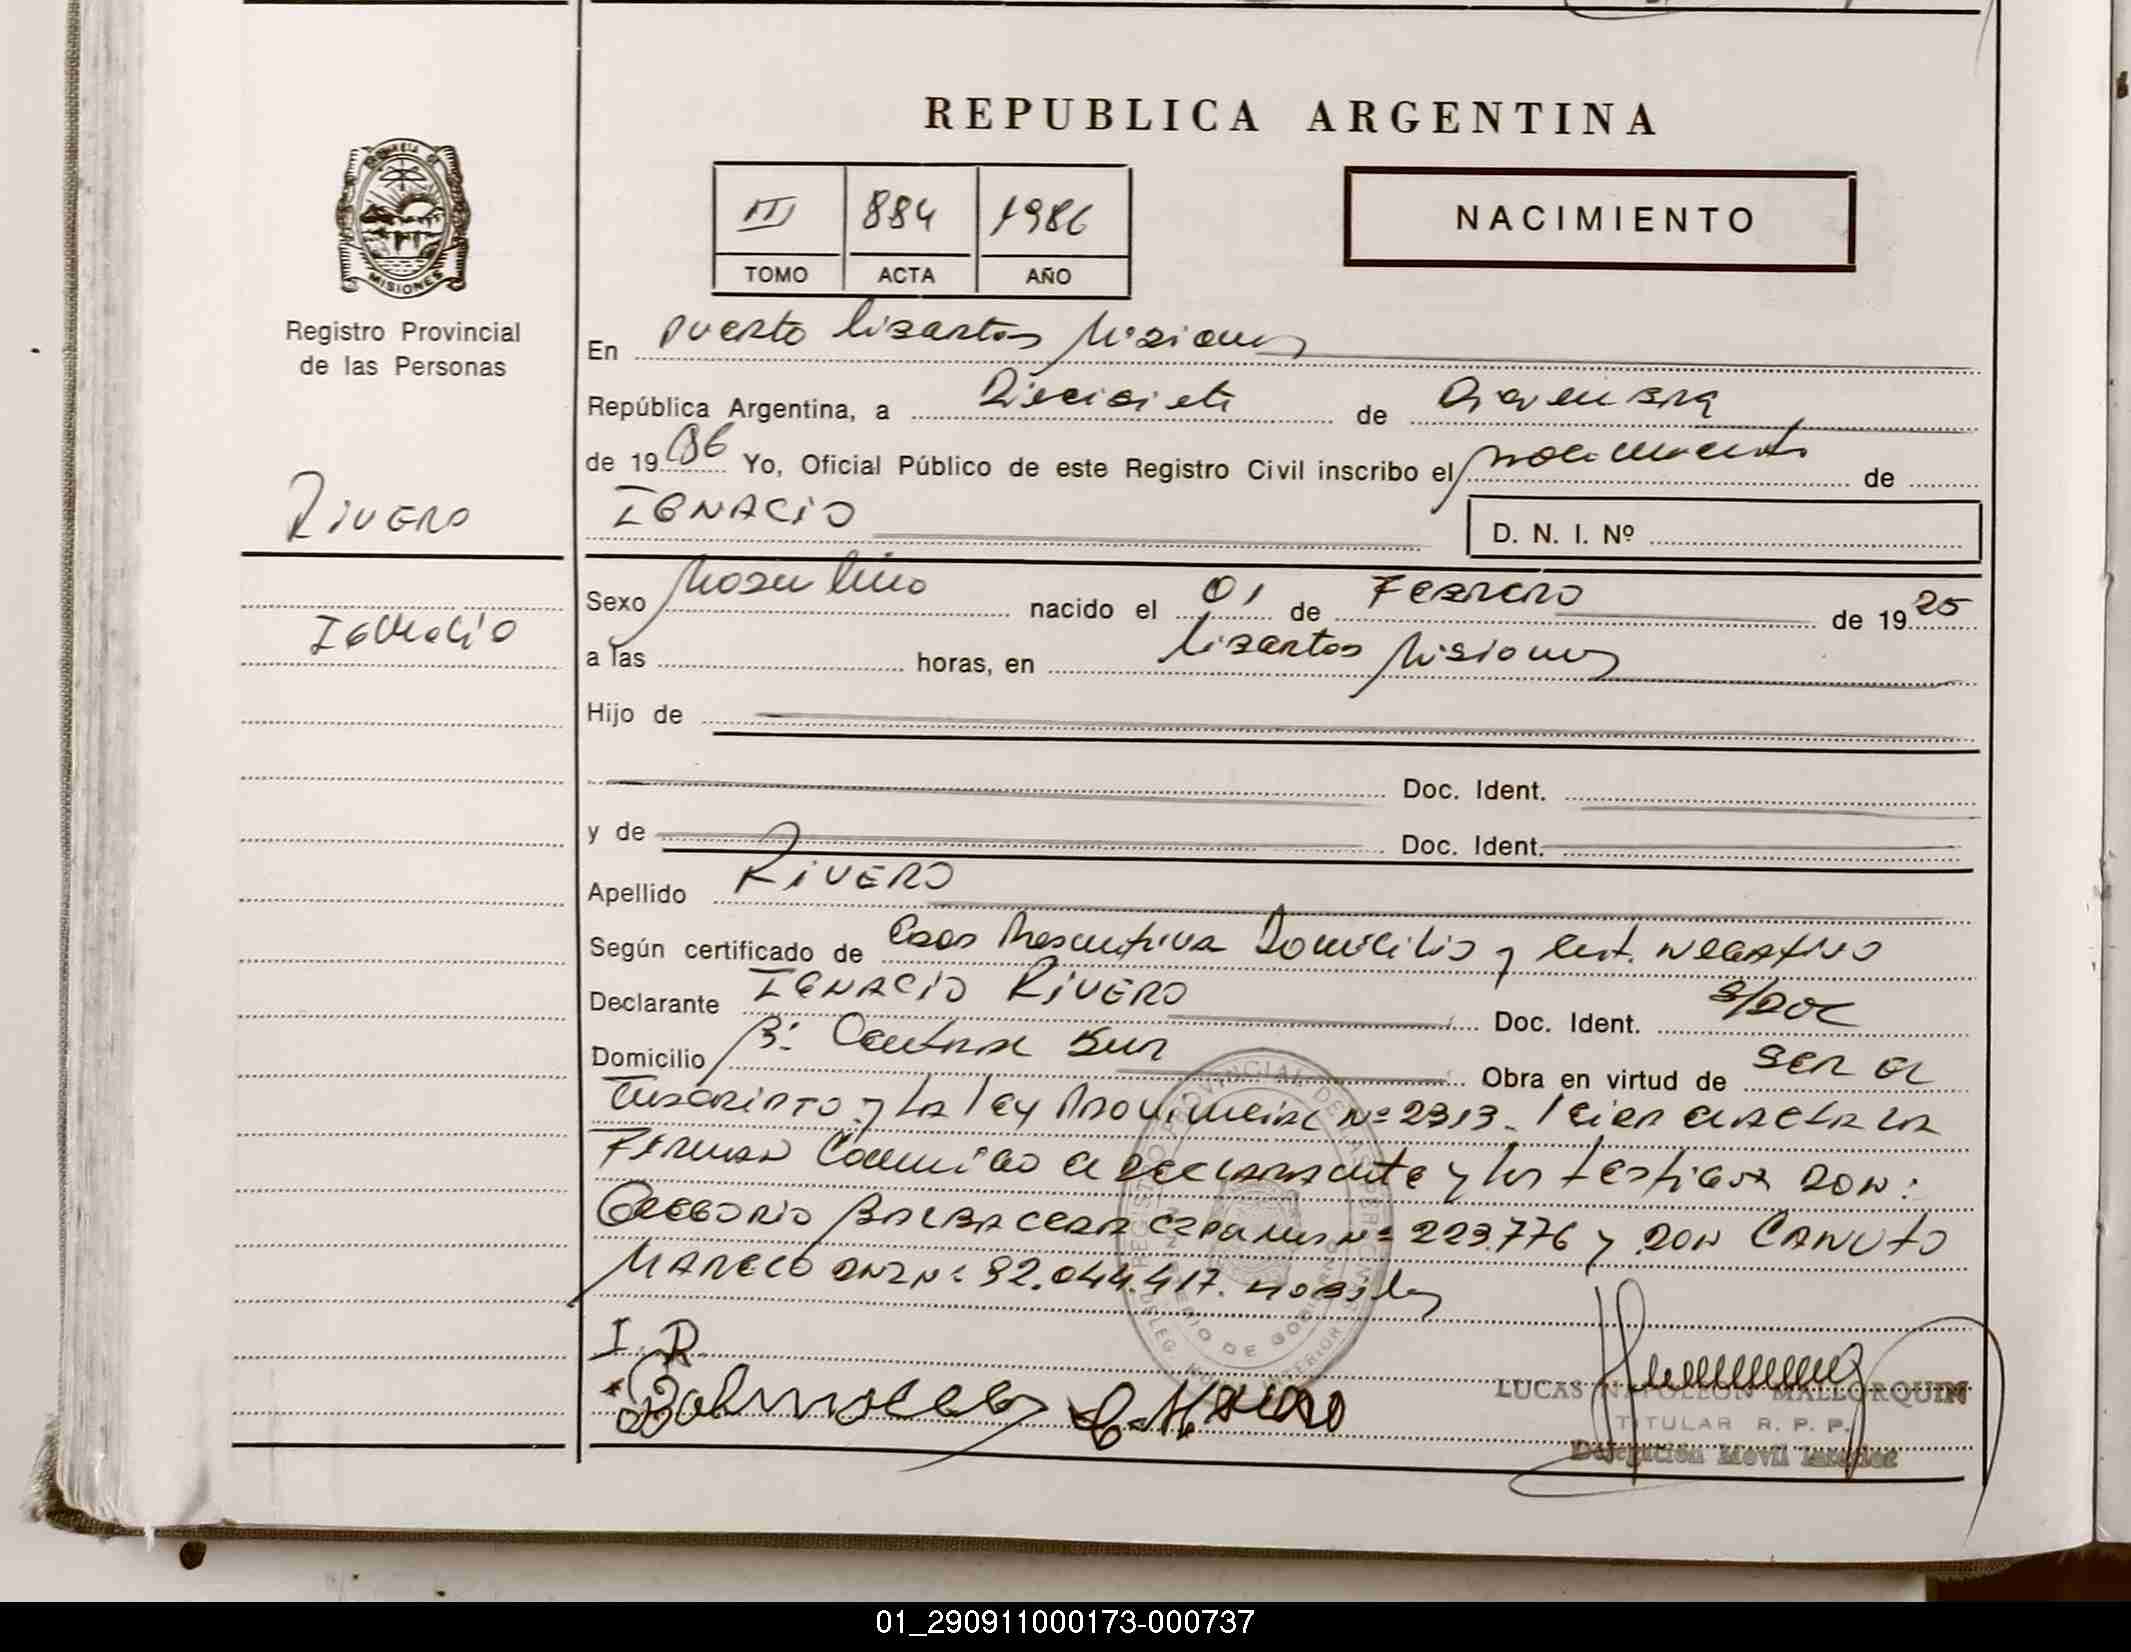 REPUBLICA ARGENTINA
III 884 1986
TOMO ACTA AÑO
NACIMIENTO
MISIONES
Registro Provincial
de las Personas
RIVERO
IGNACIO
En Puerto Libertad Misiones
República Argentina, a Diecisiete de Diciembre
de 1986 Yo, Oficial Público de este Registro Civil inscribo el nacimiento de
IGNACIO
D. N. I. Nº
Sexo Masculino nacido el 01 de Febrero de 1925
a las horas, en Libertad Misiones
Hijo de
Doc. Ident.
y de Doc. Ident.
Apellido RIVERO
Según certificado de Edad Presuntiva Domicilio y Cert. Negativo
Declarante IGNACIO RIVERO Doc. Ident. S/DOC
Domicilio Bº Central Sur Obra en virtud de ser el
Inscripto y la Ley Provincial Nº 2313. Leida el acta la
Firman Conmigo el declarante y los testigos DON:
GREGORIO Nº 223.776 y DON CANUTO
MARECO DNI Nº 92.044.417.
I. R.
LUCAS NAPOLEON MALLORQUIN
TITULAR R. P. P.
Delegación Movil Interior
01_290911000173-000737